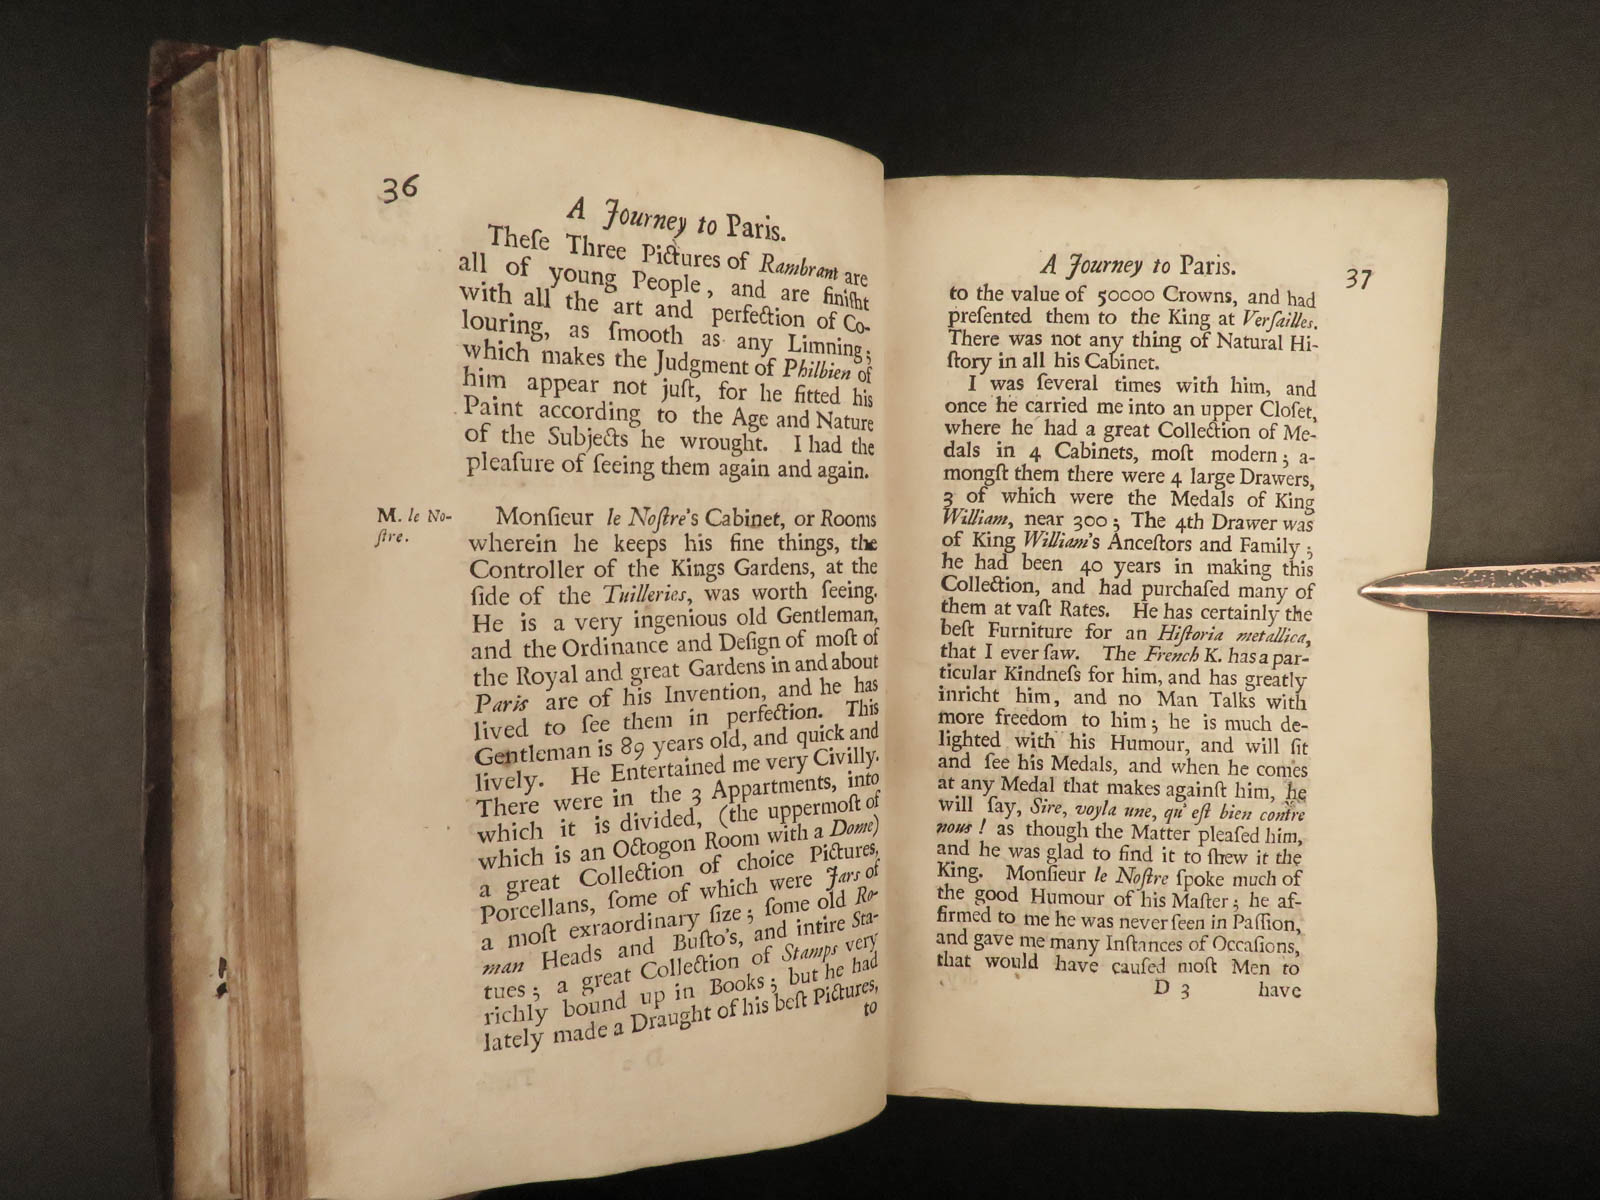 36
A Journey to Paris.
Theſe Three Pictures of Rambrant are
all of young People, and are finiſht
with all the art and perfection of Co-
louring, as ſmooth as any Limning;
which makes the Judgment of Philbien of
him appear not juſt, for he fitted his
Paint according to the Age and Nature
of the Subjects he wrought. I had the
pleaſure of ſeeing them again and again.
M. le No-
ſtre.
Monſieur le Noſtre's Cabinet, or Rooms
wherein he keeps his fine things, the
Controller of the Kings Gardens, at the
ſide of the Tuilleries, was worth ſeeing.
He is a very ingenious old Gentleman,
and the Ordinance and Deſign of moſt of
the Royal and great Gardens in and about
Paris are of his Invention, and he has
lived to ſee them in perfection. This
Gentleman is 89 years old, and quick and
lively. He Entertained me very Civilly.
There were in the 3 Appartments, into
which it is divided, (the uppermoſt of
which is an Octogon Room with a Dome)
a great Collection of choice Pictures,
Porcellans, ſome of which were Jars of
a moſt exraordinary ſize; ſome old Ro-
man Heads and Buſto's, and intire Sta-
tues; a great Collection of Stamps very
richly bound up in Books; but he had
lately made a Draught of his beſt Pictures,
to
A Journey to Paris.
37
to the value of 50000 Crowns, and had
preſented them to the King at Verſailles.
There was not any thing of Natural Hi-
ſtory in all his Cabinet.
I was ſeveral times with him, and
once he carried me into an upper Cloſet,
where he had a great Collection of Me-
dals in 4 Cabinets, moſt modern; a-
mongſt them there were 4 large Drawers,
3 of which were the Medals of King
William, near 300; The 4th Drawer was
of King William's Anceſtors and Family;
he had been 40 years in making this
Collection, and had purchaſed many of
them at vaſt Rates. He has certainly the
beſt Furniture for an Hiſtoria metallica,
that I ever ſaw. The French K. has a par-
ticular Kindneſs for him, and has greatly
inricht him, and no Man Talks with
more freedom to him; he is much de-
lighted with his Humour, and will ſit
and ſee his Medals, and when he comes
at any Medal that makes againſt him, he
will ſay, Sire, voyla une, qu' eſt bien contre
nous! as though the Matter pleaſed him,
and he was glad to find it to ſhew it the
King. Monſieur le Noſtre ſpoke much of
the good Humour of his Maſter; he af-
firmed to me he was never ſeen in Paſſion,
and gave me many Inſtances of Occaſions,
that would have cauſed moſt Men to
D 3 have